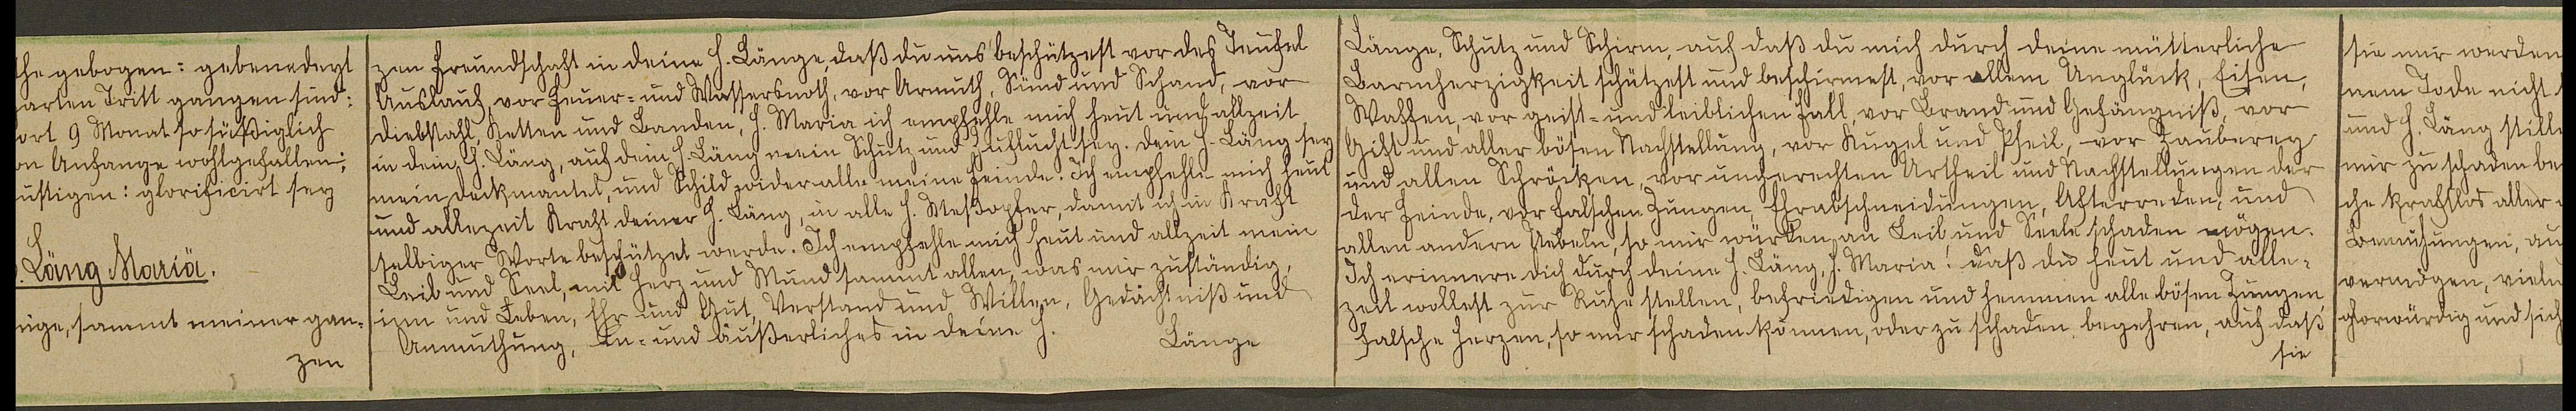 he gebogen: gebenedeyt
arten Tritt gangen sind:
ort 9 Monat so süßiglich
on Anfange wohlgefallen:
ustigen: glorificirt sey
. Läng Mariä.
nige, sammt meiner gan-
zen
zen Freundschaft in deine H. Länge, daß du uns beschützest vor des Teufel
Auslauf, vor Feuer- und Wassersnoth, vor Armuth, Sünd und Schand, vor
Diebstahl, Ketten und Banden, H. Maria ich empfehle mich heut und allzeit
in dein H. Läng, auf dein H. Läng mein Schutz und Zuflucht sey. Dein H. Läng sey
mein Deckmantel, und Schild wider alle meine Feinde. Ich empfehle mich heut
und allezeit Kraft deiner H. Läng, in alle H. Meßopfer, damit ich in Kraft
selbiger Worte beschützet werde. Ich empfehle mich heut und allzeit mein
Leib und Seel, mit Herz und Mund sammt allen, was mir zuständig,
inn und Leben, Ehr und Gut, Verstand und Willen, Gedächtniß und
Anmuthung, In- und äußerliches in deine H.
Länge
Länge, Schutz und Schirm, auf daß du mich durch deine mütterliche
Barmherzigkeit schützest und beschirmest, vor allem Unglück, Eisen,
Waffen, vor geist- und leiblichen Fall, vor Brand und Gefängniß, vor
Gift und aller bösen Nachstellung, vor Kugel und Pfeil, vor Zauberey
und allen Schröcken, vor ungerechten Urtheil und Nachstellungen der
der Feinde, vor falschen Zungen, Ehrabschneidungen, Afterreden, und
allen andern Uebeln, so mir würken an Leib und Seele schaden mögen.
Ich erinnere dich durch deine H. Läng, H. Maria! daß du heut und alle-
zeit wollest zur Ruhe stellen, befriedigen und hemmen alle bösen Zungen
falsche Herzen, so mir schaden können, oder zu schaden begehren, auf daß
sie
sie mir werden
nem Tode nicht
und H. Läng still
mir zu schaden be
che kraftlos aller
Bemühungen, au
vermögen, viel
glorwürdig und sich